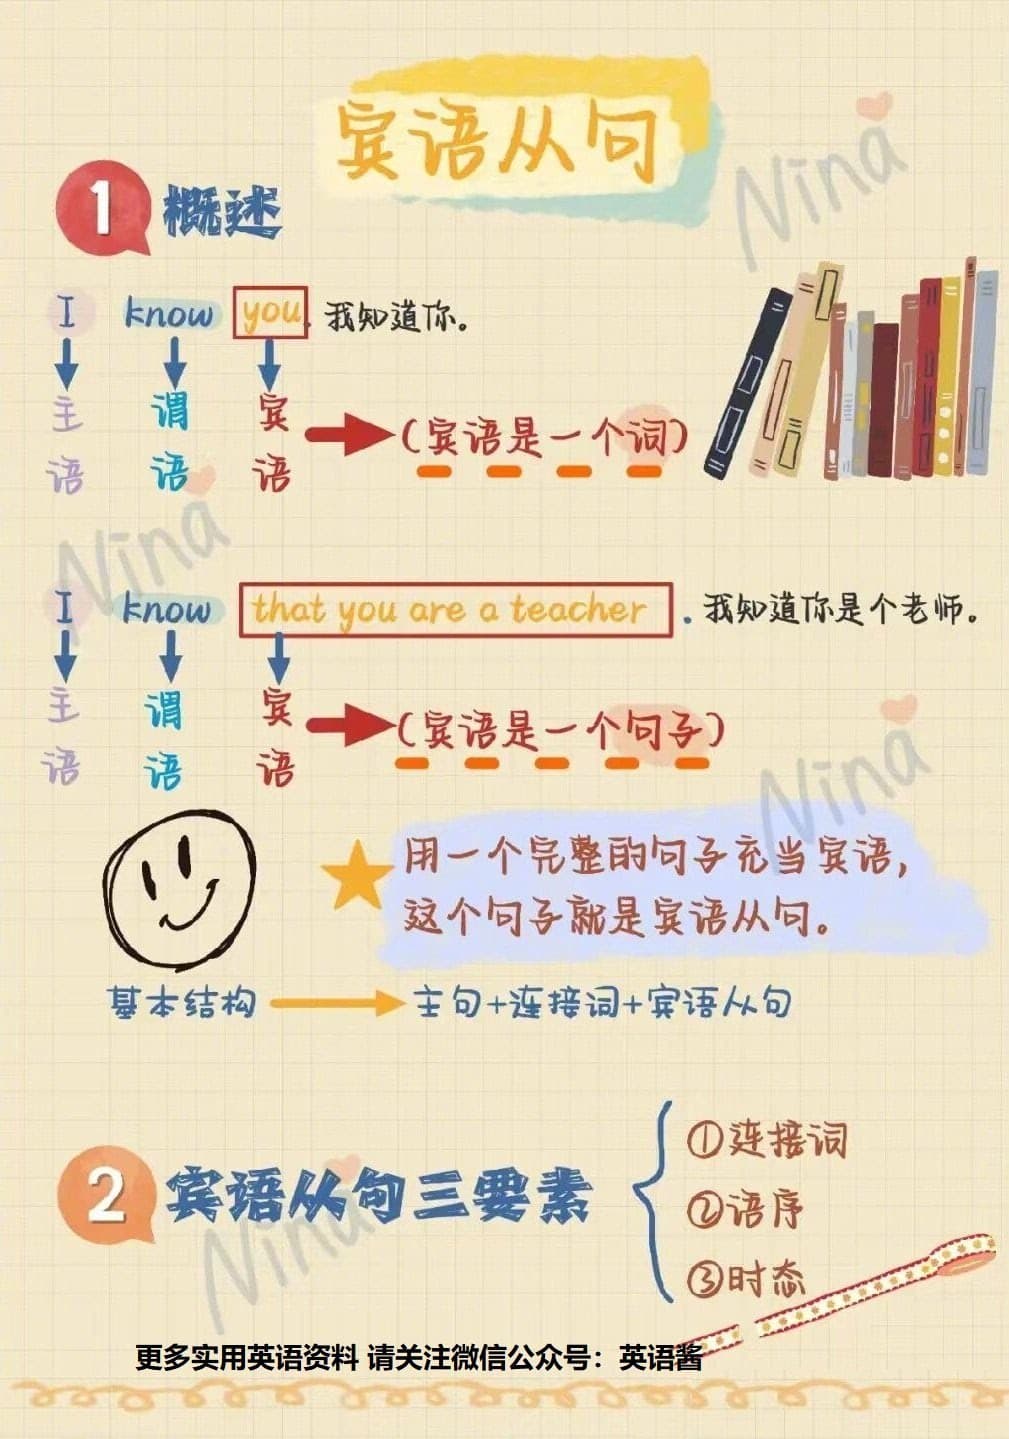 宾语从句
Nina
1 概述
I know you. 我知道你。
主语 谓语 宾语 (宾语是一个词)
Nina
I know that you are a teacher. 我知道你是个老师。
主语 谓语 宾语 (宾语是一个句子)
Nina
用一个完整的句子充当宾语,
这个句子就是宾语从句。
基本结构 主句+连接词+宾语从句
2 宾语从句三要素
①连接词
②语序
③时态
Nina
更多实用英语资料 请关注微信公众号：英语酱